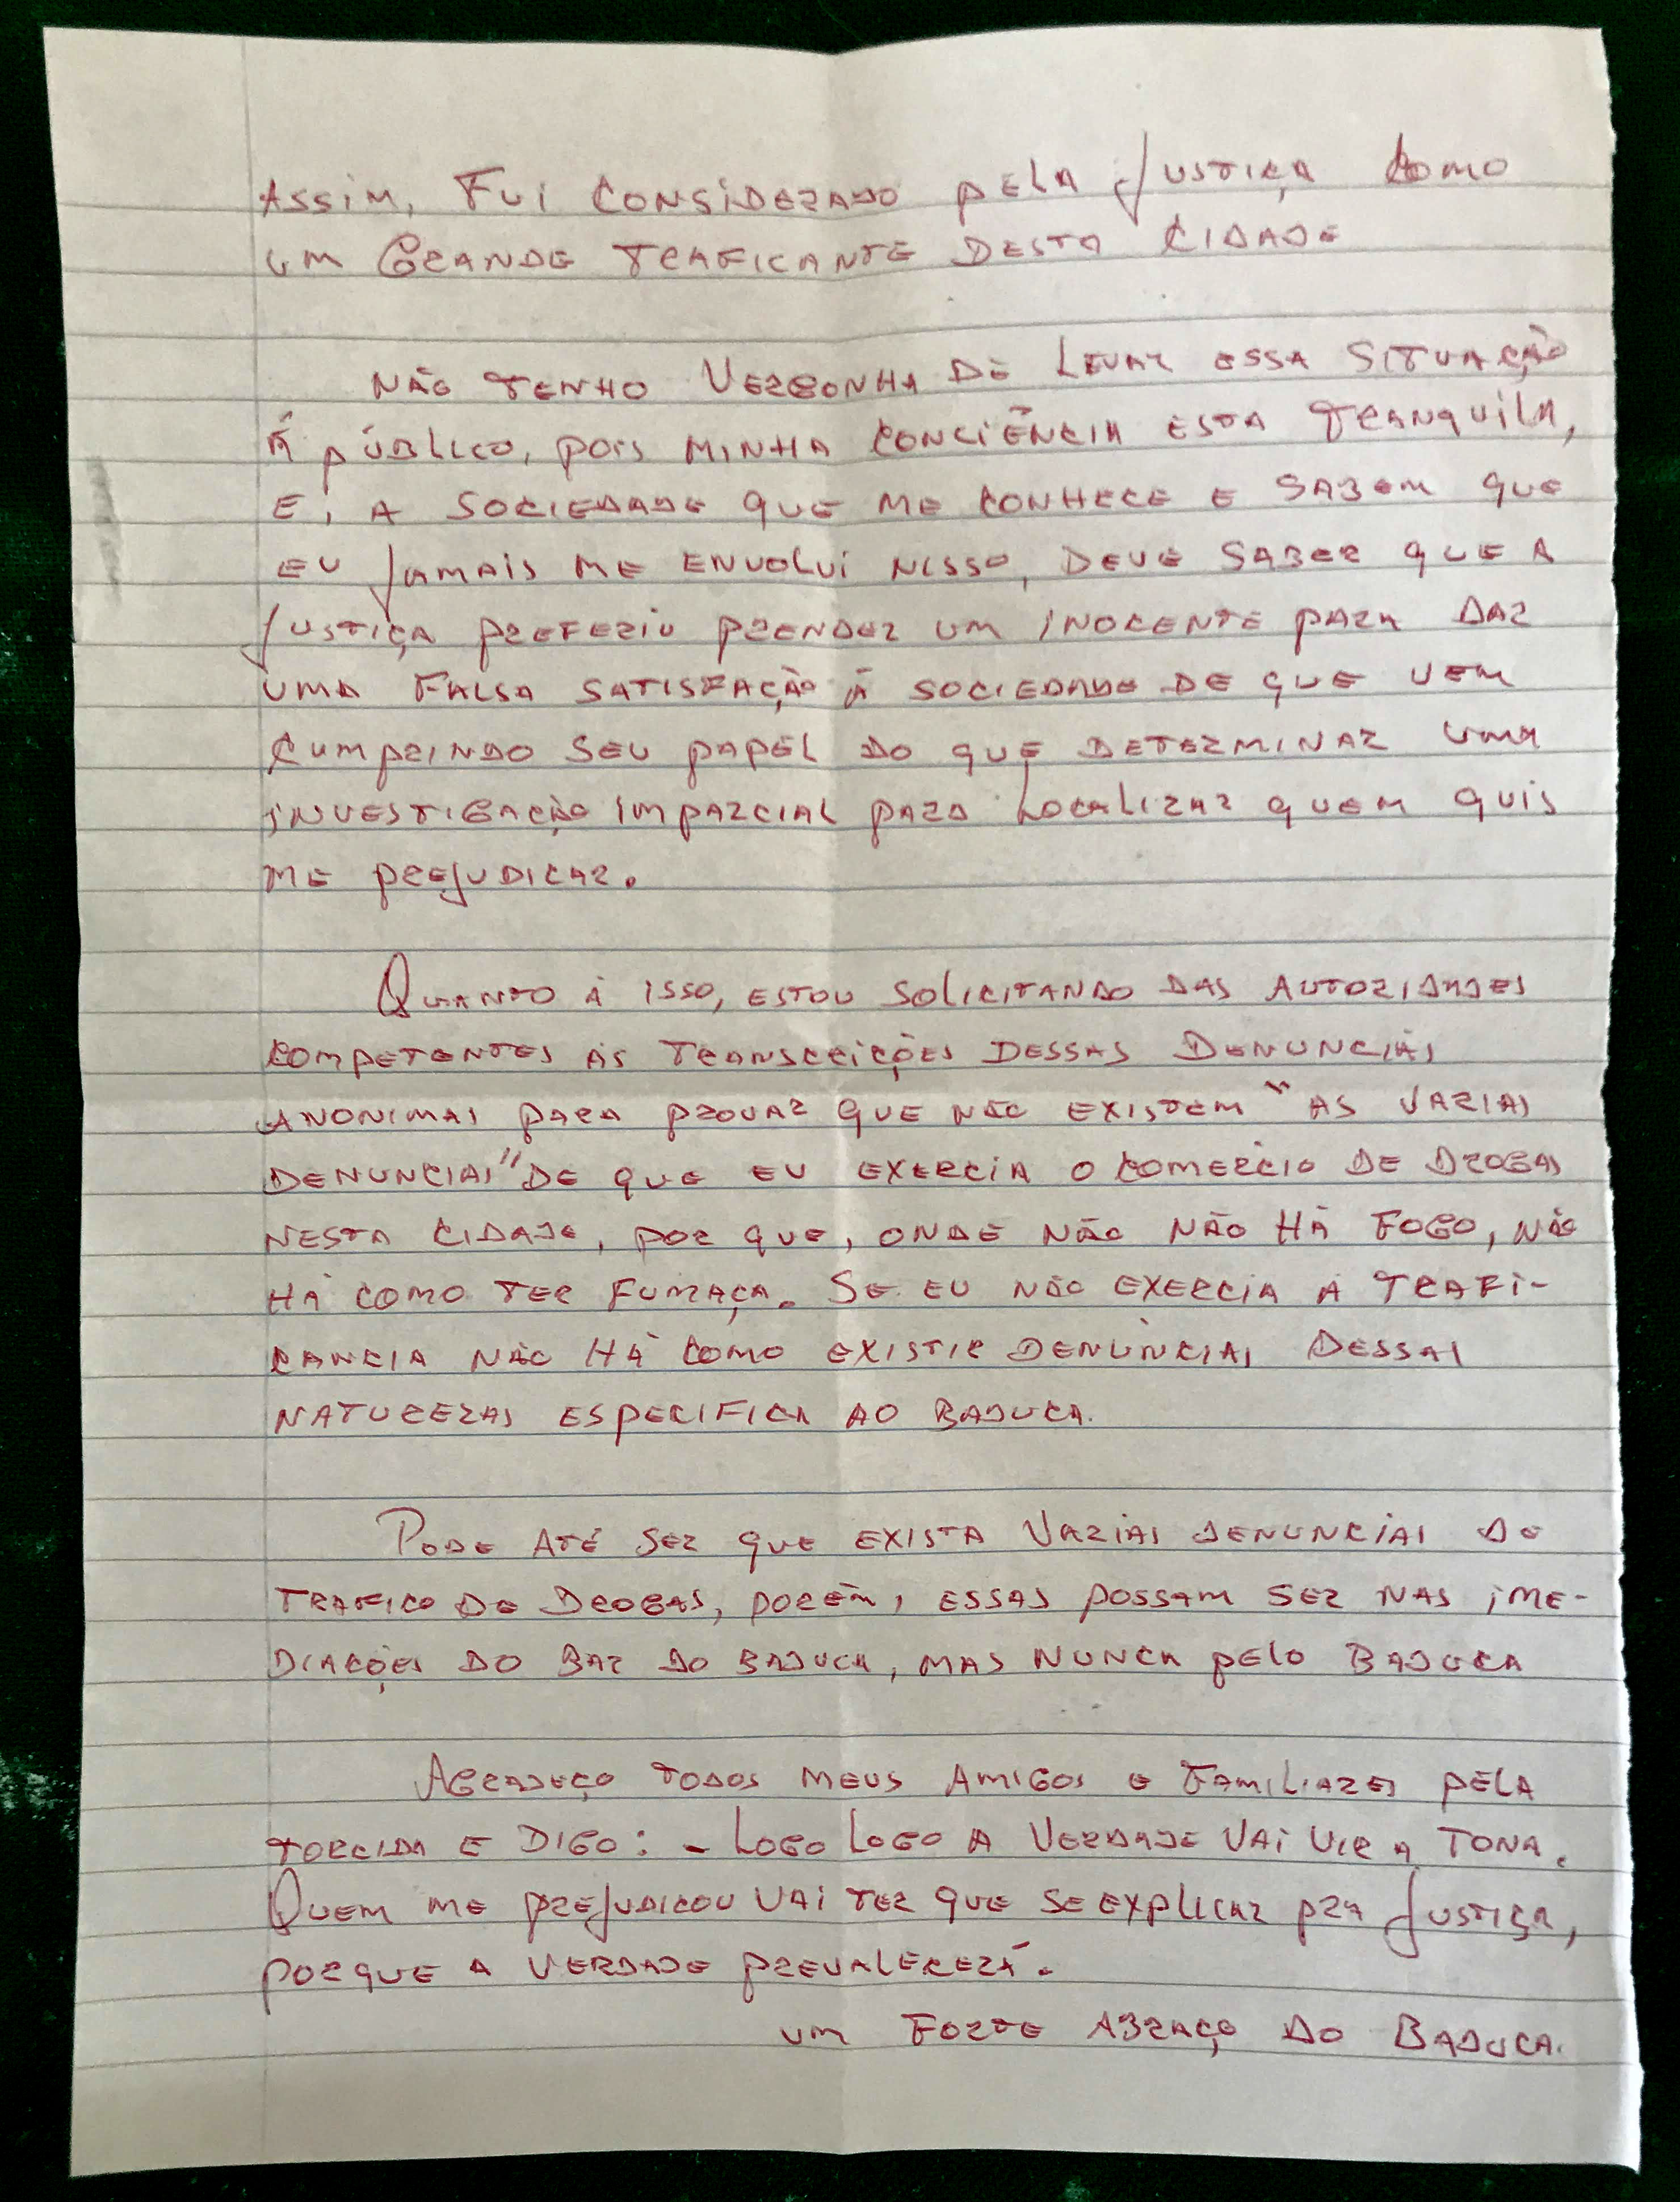 Assim, Fui considerado pela Justiça como
um Grande traficante desta cidade
Não tenho vergonha de levar essa situação
á público, pois minha conciência esta tranquila,
e, a sociedade que me conhece e sabem que
eu jamais me envolvi nisso, deve saber que a
Justiça preferiu prender um inocente para dar
uma falsa satisfação á sociedade de que vem
cumprindo seu papel do que determinar uma
investigação imparcial para localizar quem quis
me prejudicar.
Quanto á isso, estou solicitando das autoridades
competentes as transcrições dessas denuncias
anonimas para provar que não existem "as varias
denuncias" de que eu exercia o comercio de drogas
nesta cidade, por que, onde não não há fogo, não
há como ter fumaça. Se eu não exercia a trafi-
cancia não há como existir denúncias dessas
naturezas especifica ao Baduca.
Pode até ser que exista varias denuncias de
trafico de drogas, porém, essas possam ser nas ime-
diações do bar do Baduca, mas nunca pelo Baduca
Agradeço todos meus amigos e familiares pela
torcida e digo: - Logo Logo a verdade vai vir a tona.
Quem me prejudicou vai ter que se explicar pra Justiça,
porque a verdade prevalecerá.
um forte abraço do Baduca.